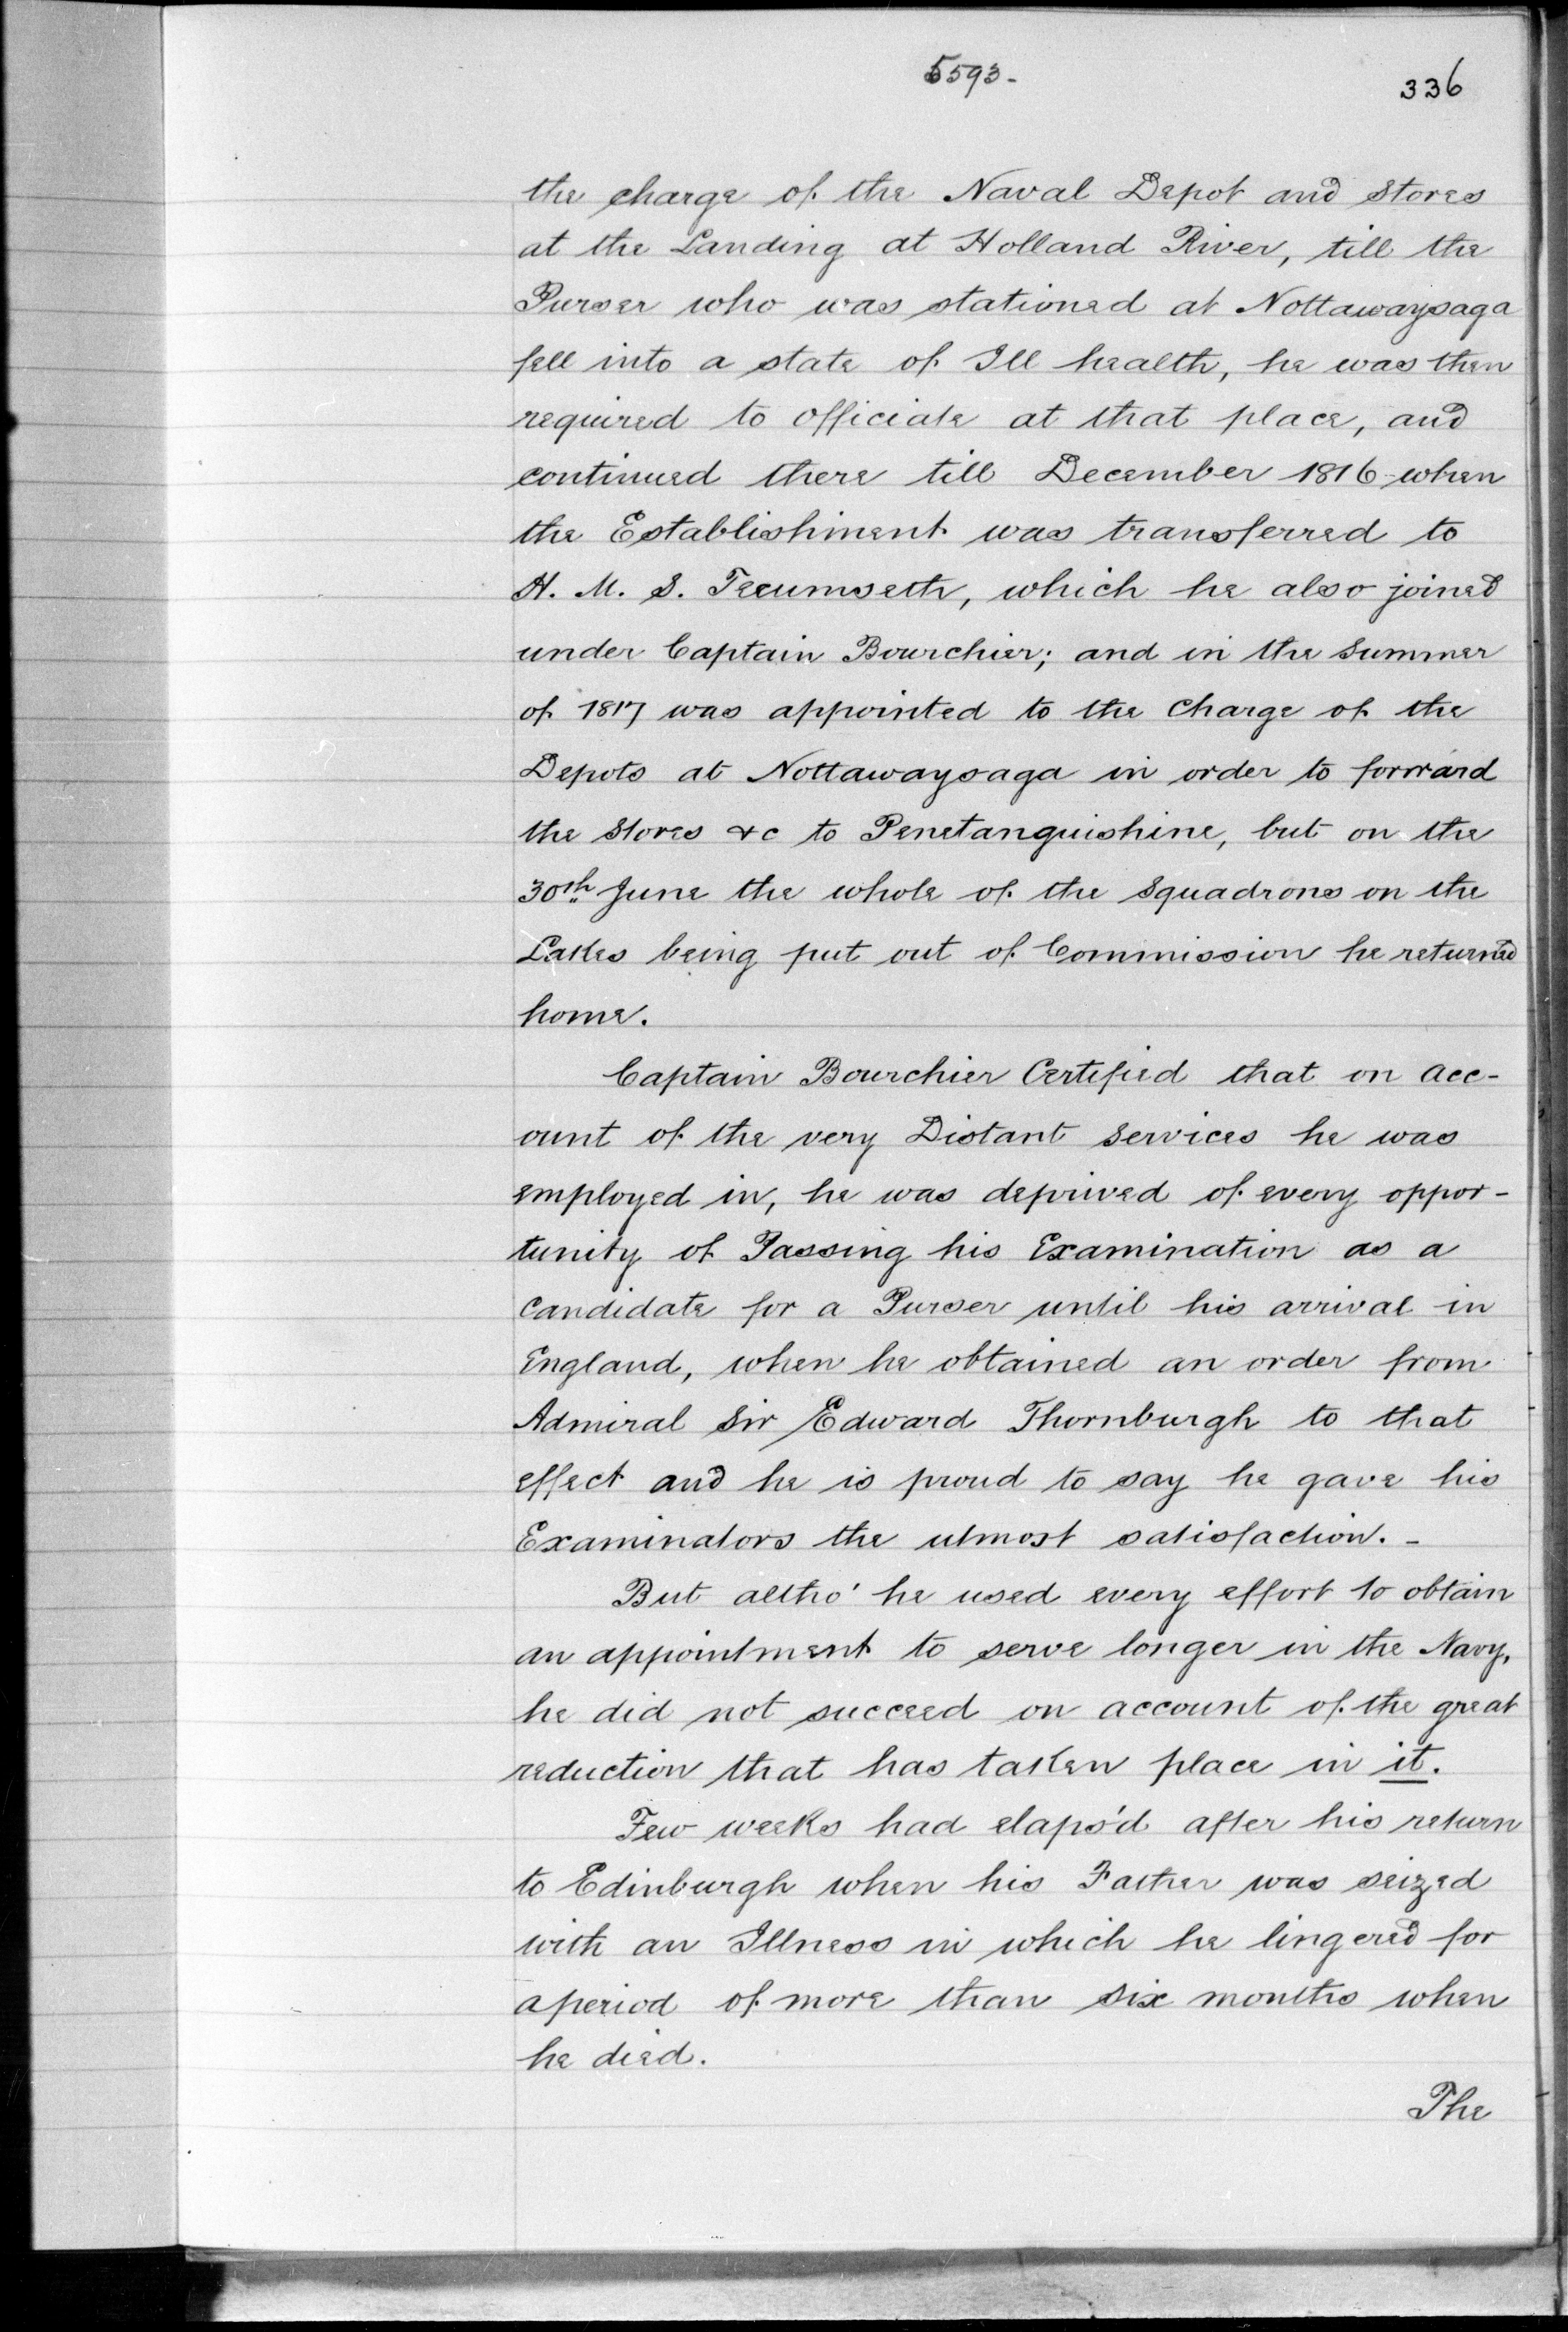 5593-
336
the charge of the Naval Depot and Stores
at the Landing at Holland River, till the
Purser who was stationed at Nottawaysaga
fell into a state of Ill health, he was then
required to officiate at that place, and
continued there till December 1816 when
the Establishment was transferred to
H. M. S. Tecumseth, which he also joined
under Captain Bourchier; and in the Summer
of 1817 was appointed to the Charge of the
Depots at Nottawaysaga in order to forward
the Stores &c to Penetanguishine, but on the
30th June the whole of the Squadrons on the
Lakes being put out of Commission he returned
home.
Captain Bourchier Certified that on acc-
ount of the very Distant Services he was
employed in, he was deprived of every oppor-
tunity of Passing his Examination as a
Candidate for a Purser until his arrival in
England, when he obtained an order from
Admiral Sir Edward Thornburgh to that
effect and he is proud to say he gave his
Examinators the utmost satisfaction. -
But altho' he used every effort to obtain
an appointment to serve longer in the Navy,
he did not succeed on account of the great
reduction that has taken place in it.
Few weeks had elaps'd after his return
to Edinburgh when his Father was seized
with an Illness in which he lingered for
a period of more than six months when
he died.
The